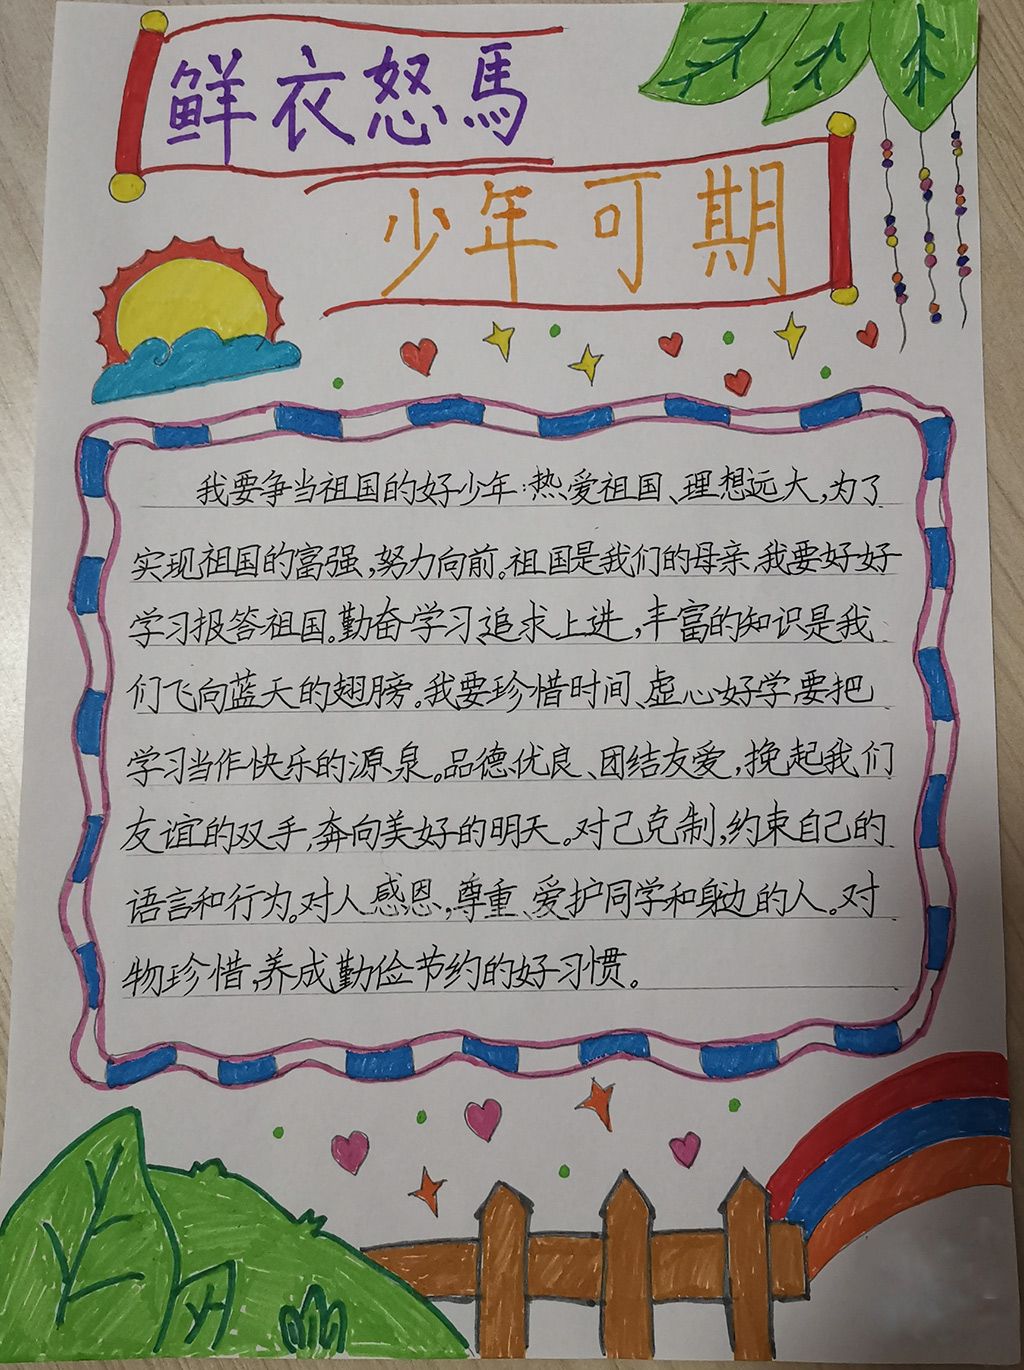 鲜衣怒馬
少年可期
我要争当祖国的好少年:热爱祖国、理想远大,为了
实现祖国的富强,努力向前。祖国是我们的母亲,我要好好
学习报答祖国。勤奋学习追求上进,丰富的知识是我
们飞向蓝天的翅膀。我要珍惜时间、虚心好学,要把
学习当作快乐的源泉。品德优良、团结友爱,挽起我们
友谊的双手,奔向美好的明天。对己克制,约束自己的
语言和行为。对人感恩,尊重、爱护同学和身边的人。对
物珍惜,养成勤俭节约的好习惯。